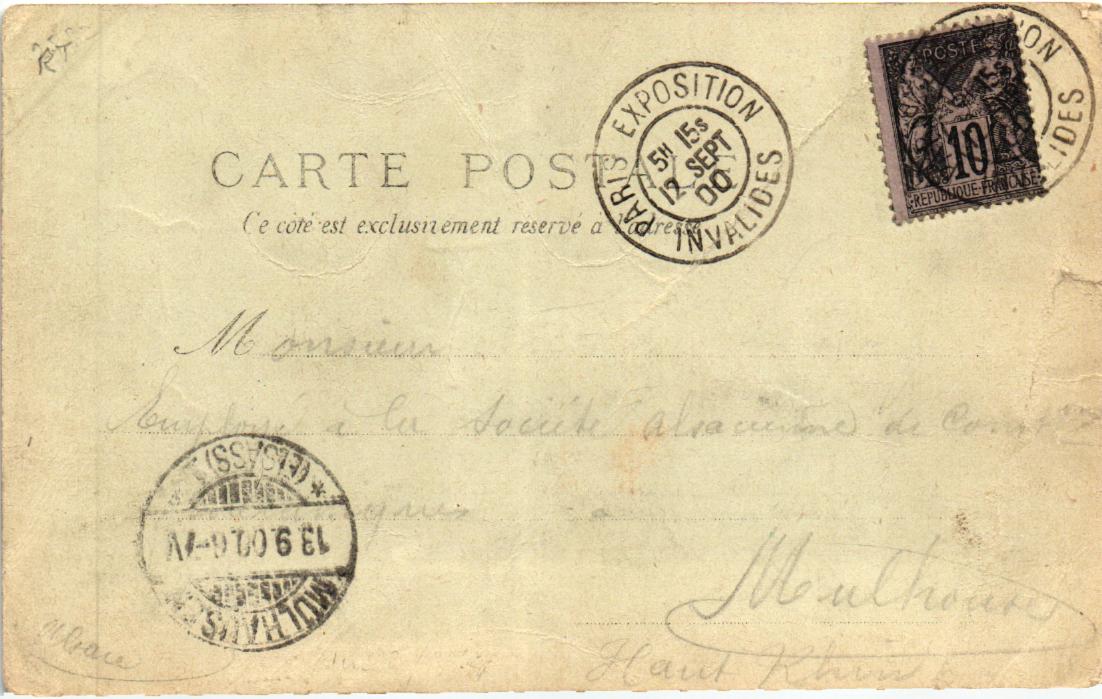 CARTE POSTALE
Ce côté est exclusivement reservé à l'adresse
PARIS EXPOSITION
5H 15S
12 SEPT
00
INVALIDES
POSTE
10
REPUBLIQUE-FRANÇAISE
Monsieur
Employé à la Société alsacienne de
Mulhouse
Haut Rhin
Alsace
MÜLHAUSEN
13.9.00.6-7V
* (ELSASS)